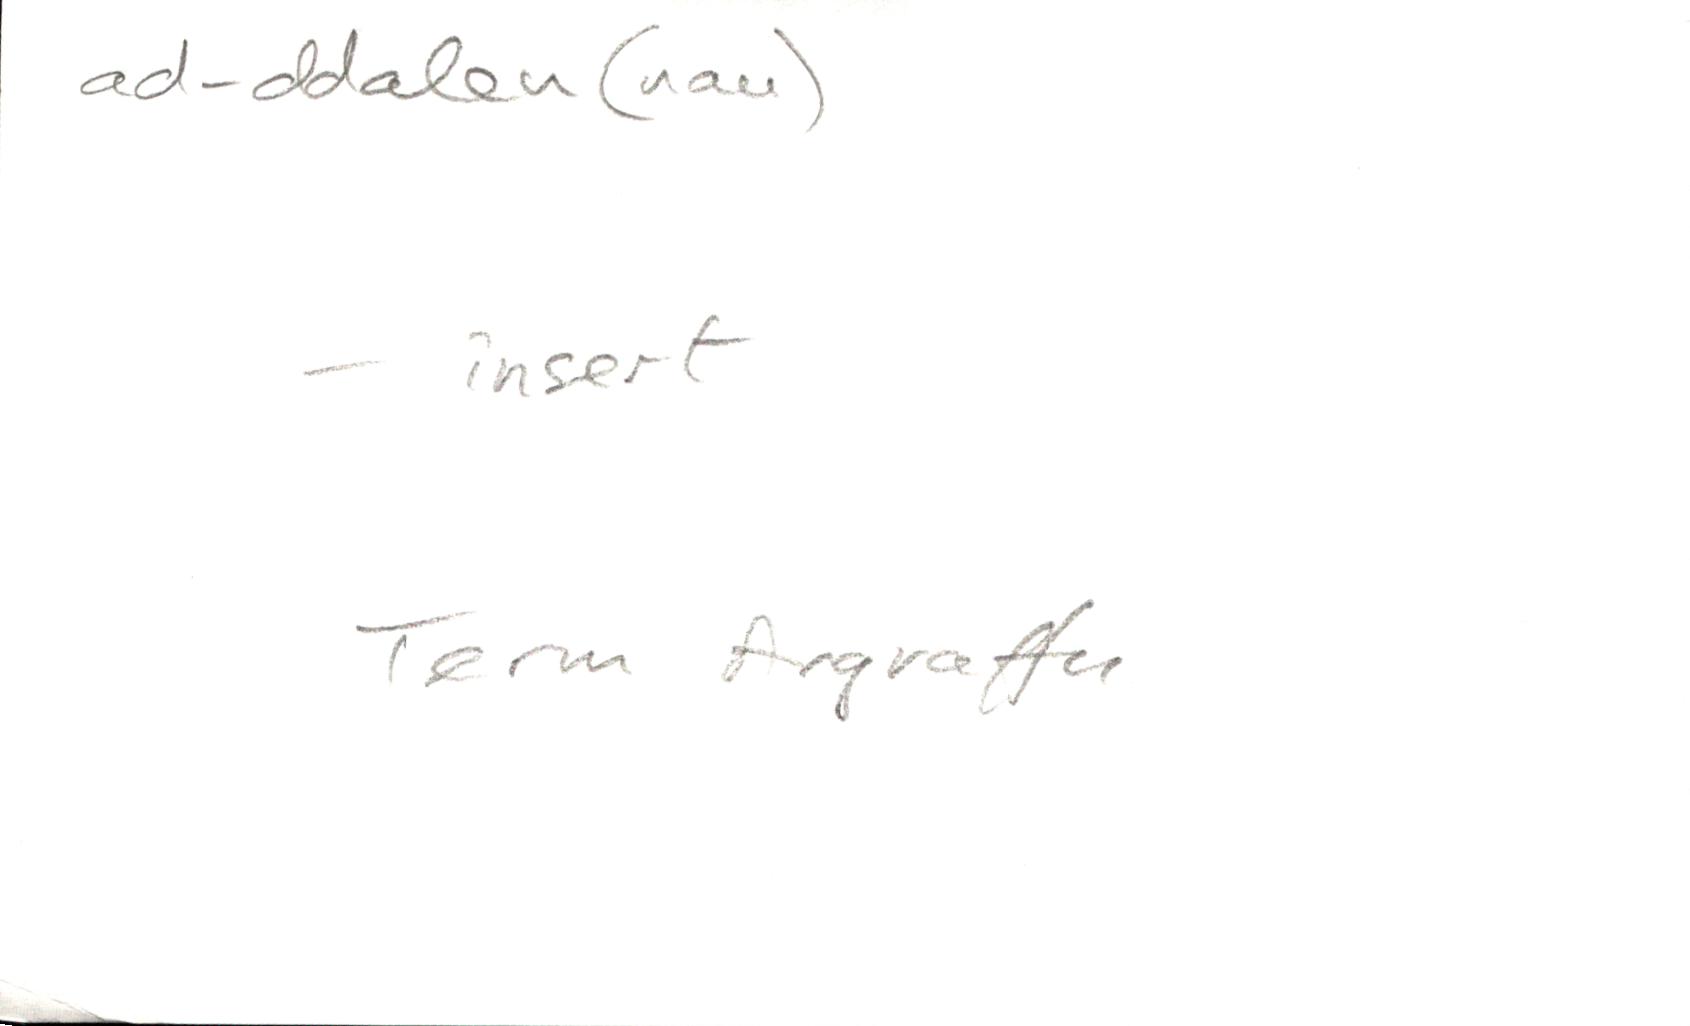 ad-ddalen (nau)
- insert
Term Argraffu